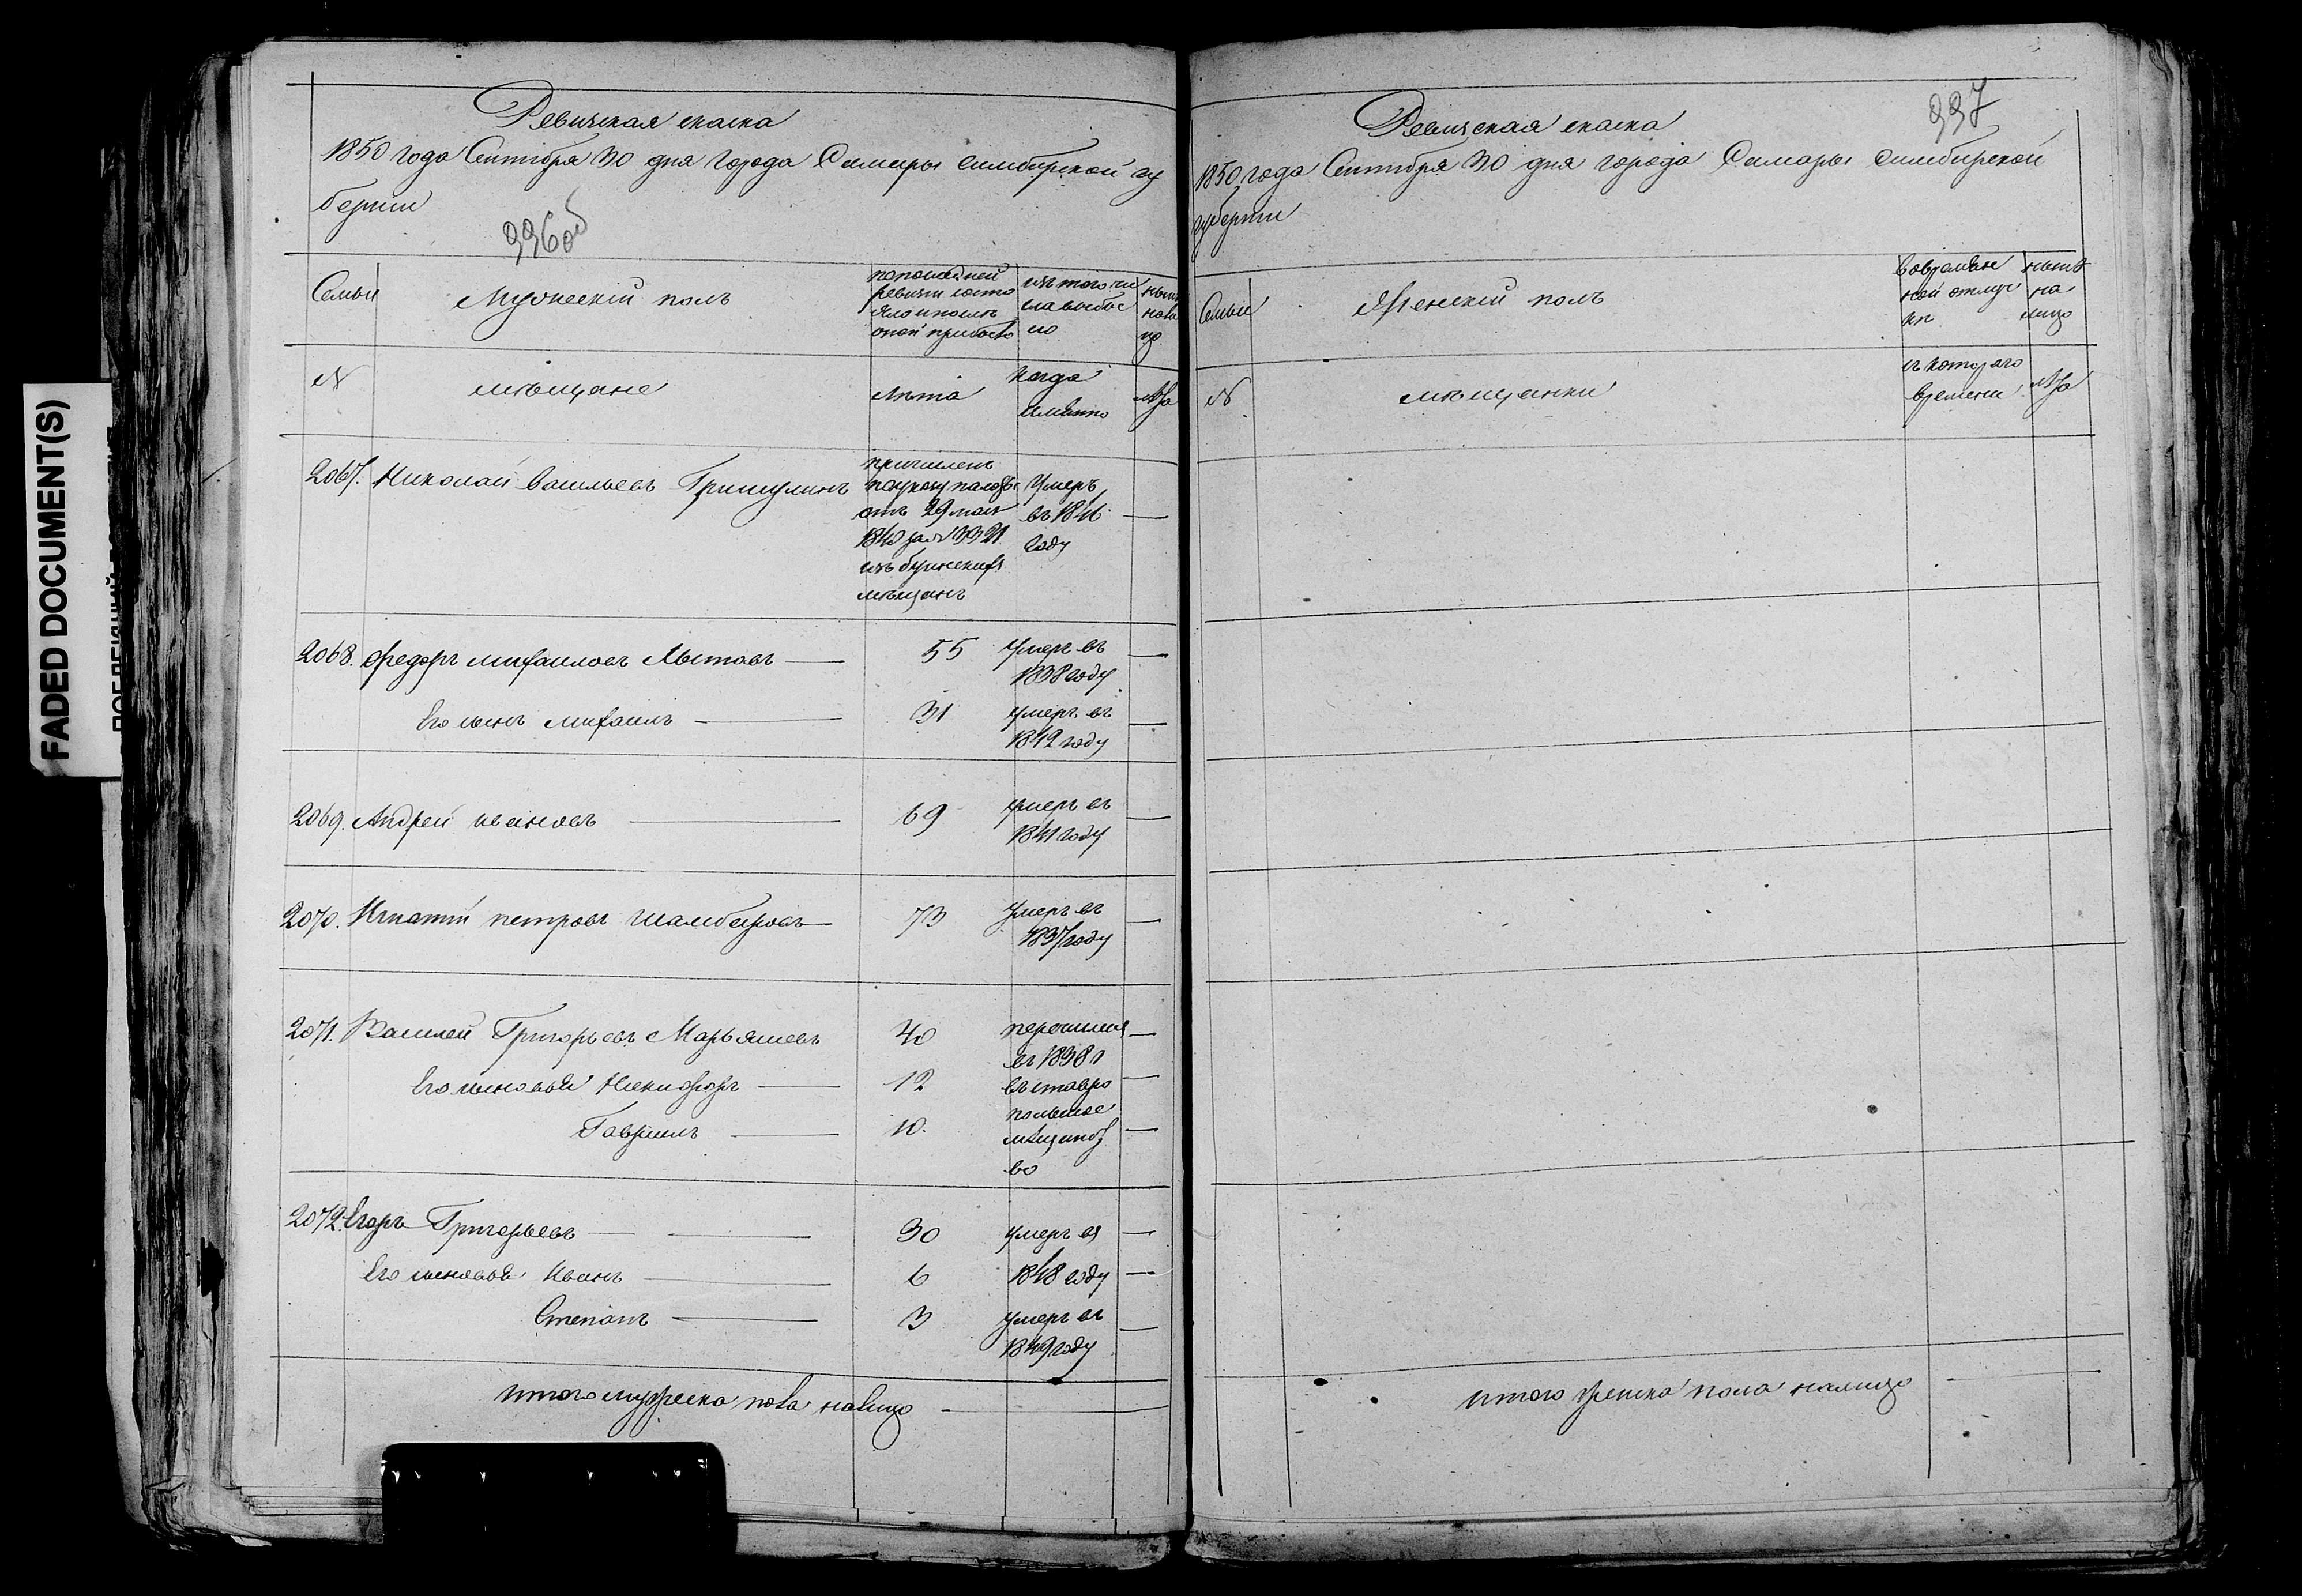 FADED DOCUMENT(S)
Ревизская скаска
1850 года Сентября 30 дня города Самары Симбирской гу
бернии
996об
Семьи
Мужеский полъ
попоследней
ревизіи состо
яло и после
оной прибыло
изъ того чи
сла выбы
ло
ныне
нали
цо
№
мещане
Лета
Когда
имянно
Лета
2067. Николай Васильевъ Гришулинъ
причисленъ
по указу палаты
отъ 29 мая
1840 за № 3321
изъ буинскихъ
мещанъ
Умеръ
въ 1846
году
—
2068. Федоръ Михаиловъ Лытовъ — 55 умеръ въ —
1838 году
Его сынъ Михаилъ — 31 умеръ въ —
1842 году
2069. Андрей Ивановъ — 69 умеръ въ —
1841 году
2070. Игнатій Петровъ Шалабаровъ — 73 умеръ въ —
1837 году
2071. Василей Григорьевъ Марьяшевъ 40
Его сыновья Никифоръ — 12
Гаврилъ — 10.
перечисленъ
въ 1838 г
въ ставро
польское
мещанст
во
2072. Егоръ Григорьевъ — 30 умеръ въ —
Его сыновья Иванъ — 6 1848 году —
Степанъ — 3 умеръ въ —
1849 году
Итого мужеска пола налицо —
997
Ревизская скаска
1850 года Сентября 30 дня города Самары Симбирской
губернии
Семьи
Женский полъ
Вовремян
ной отлуч
ке
ныне
на
лицо
№
мещанки
съ котораго
времени
Лета
Итого женска пола налицо —